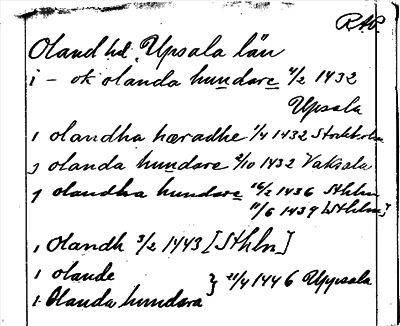 RAP.
Oland hd. Upsala län
i - ok olanda hundare 4/2 1432
Upsala
i olandha hæradhe 1/4 1432 Stockholm
j olanda hundare 2/10 1432 Vaksala
j olandha hundare 16/2 1436 Sthlm
11/6 1439 [Sthlm]
i Olandh 3/2 1443 [Sthlm]
i olande
} 21/4 1446 Uppsala
i Olanda hundara